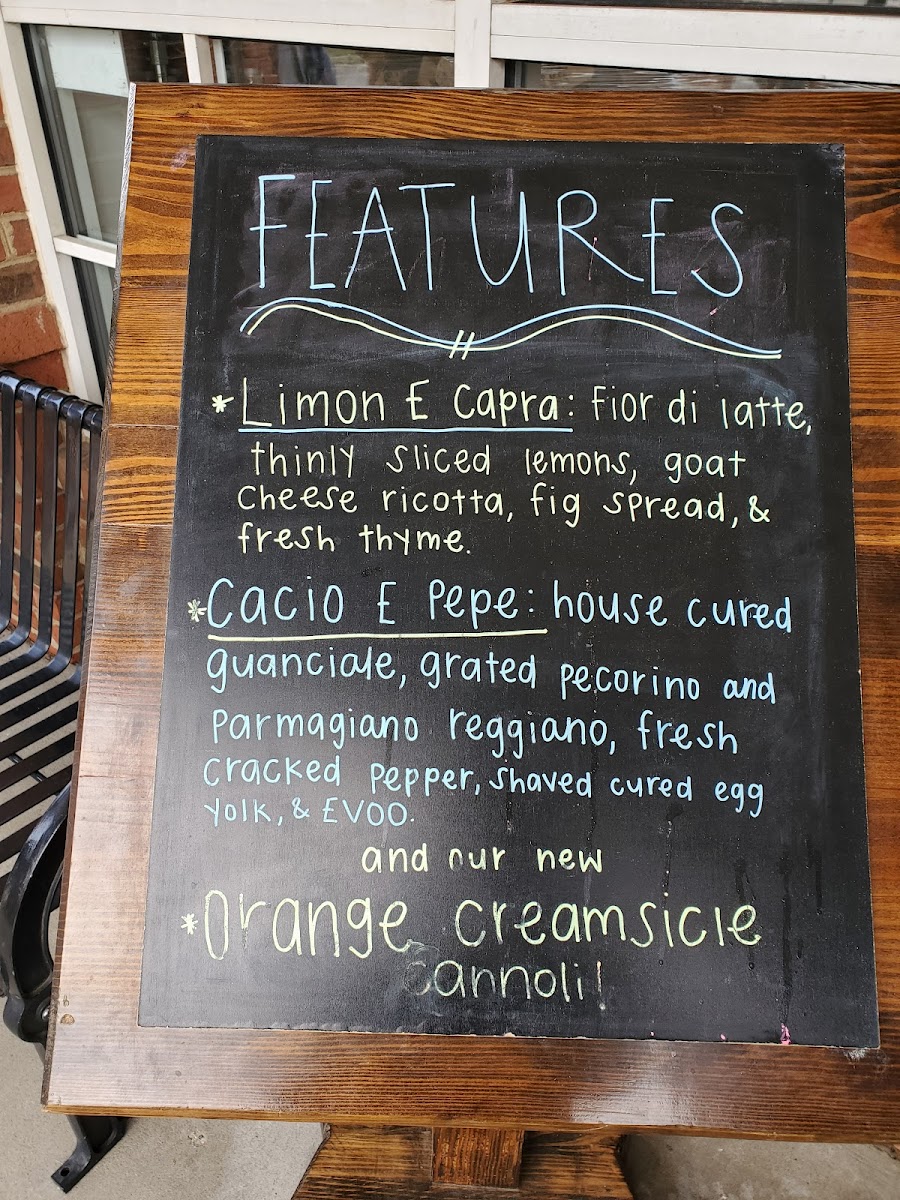 FEATURES
*Limon E Capra: Fior di latte,
thinly sliced lemons, goat
cheese ricotta, fig spread, &
fresh thyme.
*Cacio E Pepe: house cured
guanciale, grated pecorino and
Parmagiano reggiano, fresh
cracked pepper, shaved cured egg
yolk, & EVOO.
and our new
*Orange creamsicle
cannoli!